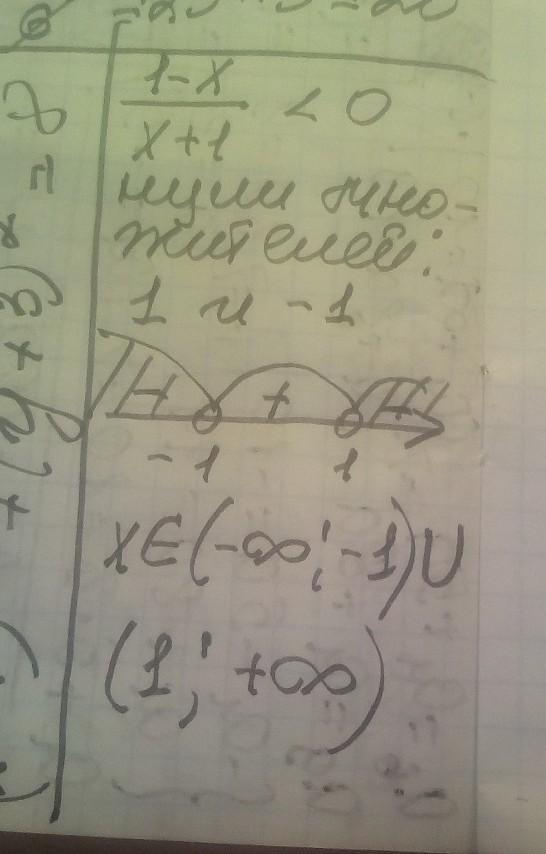 1-x
x+1 < 0
нули мно-
жителей:
1 и -1
- + -
-1 1
x∈(-∞; -1)∪
(1; +∞)